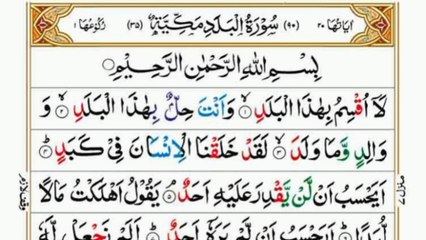 اٰیَاتُهَا ۲۰ (۹۰) سُوْرَةُ الْبَلَدِ مَكِّیَّةٌ (۳۵) رُكُوْعُهَا ۱
بِسْمِ اللهِ الرَّحْمٰنِ الرَّحِیْمِ
لَاۤ اُقْسِمُ بِهٰذَا الْبَلَدِ ۙ۱ وَاَنْتَ حِلٌّۢ بِهٰذَا الْبَلَدِ ۙ۲ وَ
وَالِدٍ وَّمَا وَلَدَ ۙ۳ لَقَدْ خَلَقْنَا الْاِنْسَانَ فِیْ كَبَدٍ ؕ۴
اَیَحْسَبُ اَنْ لَّنْ یَّقْدِرَ عَلَیْهِ اَحَدٌ ۘ۵ یَقُوْلُ اَهْلَكْتُ مَالًا
لُّبَدًا ؕ۶ اَیَحْسَبُ اَنْ لَّمْ یَرَهٗۤ اَحَدٌ ؕ۷ اَلَمْ نَجْعَلْ لَّهٗ
منزل ۷
وقف لازم